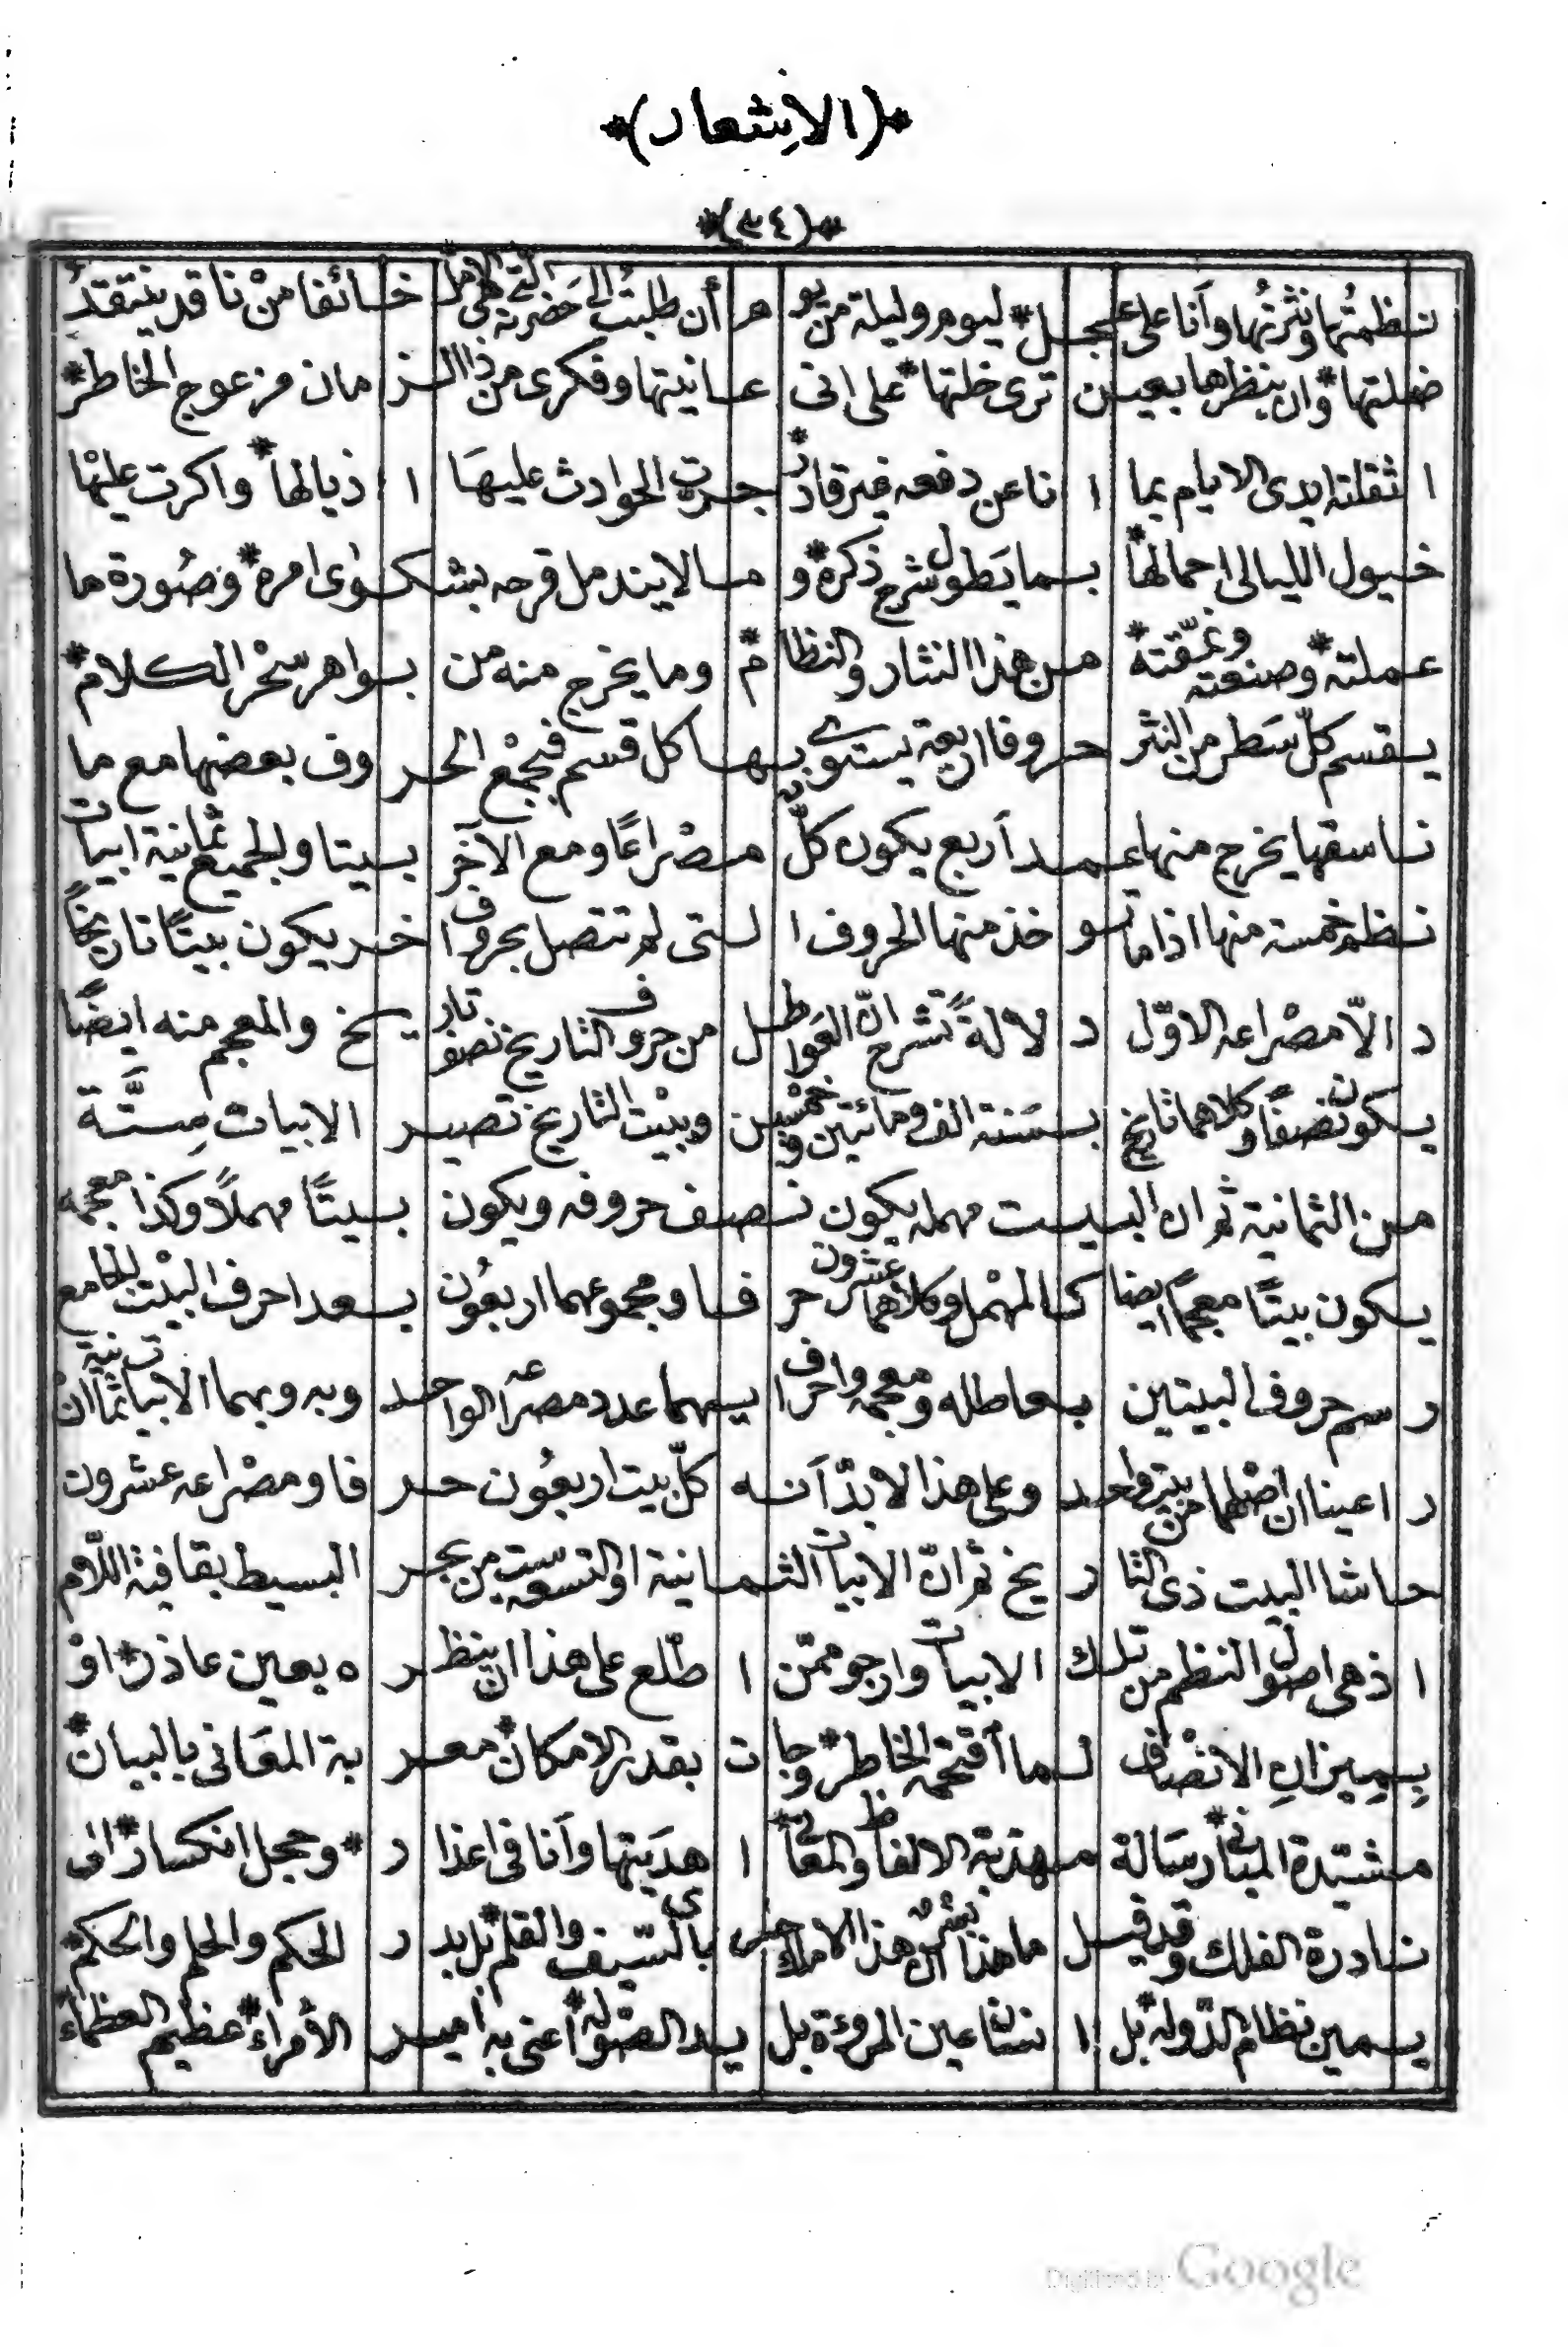 *(الاِشعار)*
*(٣٤)*
نظمتُها ونثرتُها وأنا على عجل* ليوم وليلة من يوم أن طلبتُ الى حَضرته التي هي الامل خائفا منْ ناقد ينتقدُ
ضلتها* وان ينظرها بعين ترى خلتها* على انى عانيتها وفكرى من ذا الزمان مزعوج الخاطر*
اثقلته ايدى الايام بما انا عن دفعه غير قادر* جرت الحوادث عليهَا اذيالها* واكرت عليهْا
خيول الليالى احمالها* بما يَطول شرح ذكره* و مالا يندمل قرحه بشكوٰى امره* وصُورة ما
عملته* وصنعته ونمّقته* من هذا النثار والنظام* وما يخرج منه من بواهر سحْر الكلام*
يقسم كلّ سَطر من النثر حروفا اربعة يستوى بها كل قسم فبجمْع الحروف بعضها مع ما
ناسقها يخرج منها عمد أربع يكون كلّ مصْراعًا ومع الآخر بيتا والجميع ثمانية ابيات
نظم خمسة منها اذا ما تؤخذ منها الحروف التى لم تتصل بحروف اخر يكون بيتًا تاريخًا
د الاّ مصْراعه الاوّل دلالةً تشرح انّ العَواطل من حروف التاريخ نصف تاريخ والمعجم منه ايضًا
يكون نصفًا وكلاهما تاريخ بسَنة الف ومائتين وخمْسين وببيْت التاريخ تصير الابيات مِستَّة
من الثمانية ثم ان البيت مهمله يكون نصف حروفه ويكون بيتًا مهملاً وكذا معجمه
يكون بيتًا معجمًا ايضا كالمهْمل وكلاهما عشرون حرفا ومجموعهما اربعُون بعد احرف البيْت الجامع
رسم حروف البيتين بعاطله ومعجمه واحرف ايهما عدد مصراعه الواحد وبه وبهما الابيات ثمانية ان
راعينا ان اصْلهما من بيت واحد وعلى هذا لا بدّ أنه كلّ بيت اربعُون حرفا ومصْراعه عشرون
حاشا البيت ذى التاريخ ثم انّ الابيات الثمانية او التسعه ست من بحر البسيط بقافية اللّام
اذ هى اصُول النظم من تلك الابيات وارجو ممّن اطّلع على هذا ان ينظره بعين عاذر* اوْ
بِمِيزانِ الانصْاف لما أقتحمه الخاطر* وجات بقدر الامكان* معربة المعَانى بالبيان*
مشيّدة المبانى* رسَالة مهذبة الالفاظ والمعَانى* اهدَيتها وأنا فى اعذار* وحجل انكسار* انى
نادرة الفلك وقد قيل ما هذا بشرًا ان هذا الا ملك حَرى بالسّيف والقلم* بل بدر الحكم والحلم والحكم*
يمين نظام الدّوله* بل انسان عين المروءة بل يد الصّوله* اعنى به امير الأمراء* عظيم العظماء*